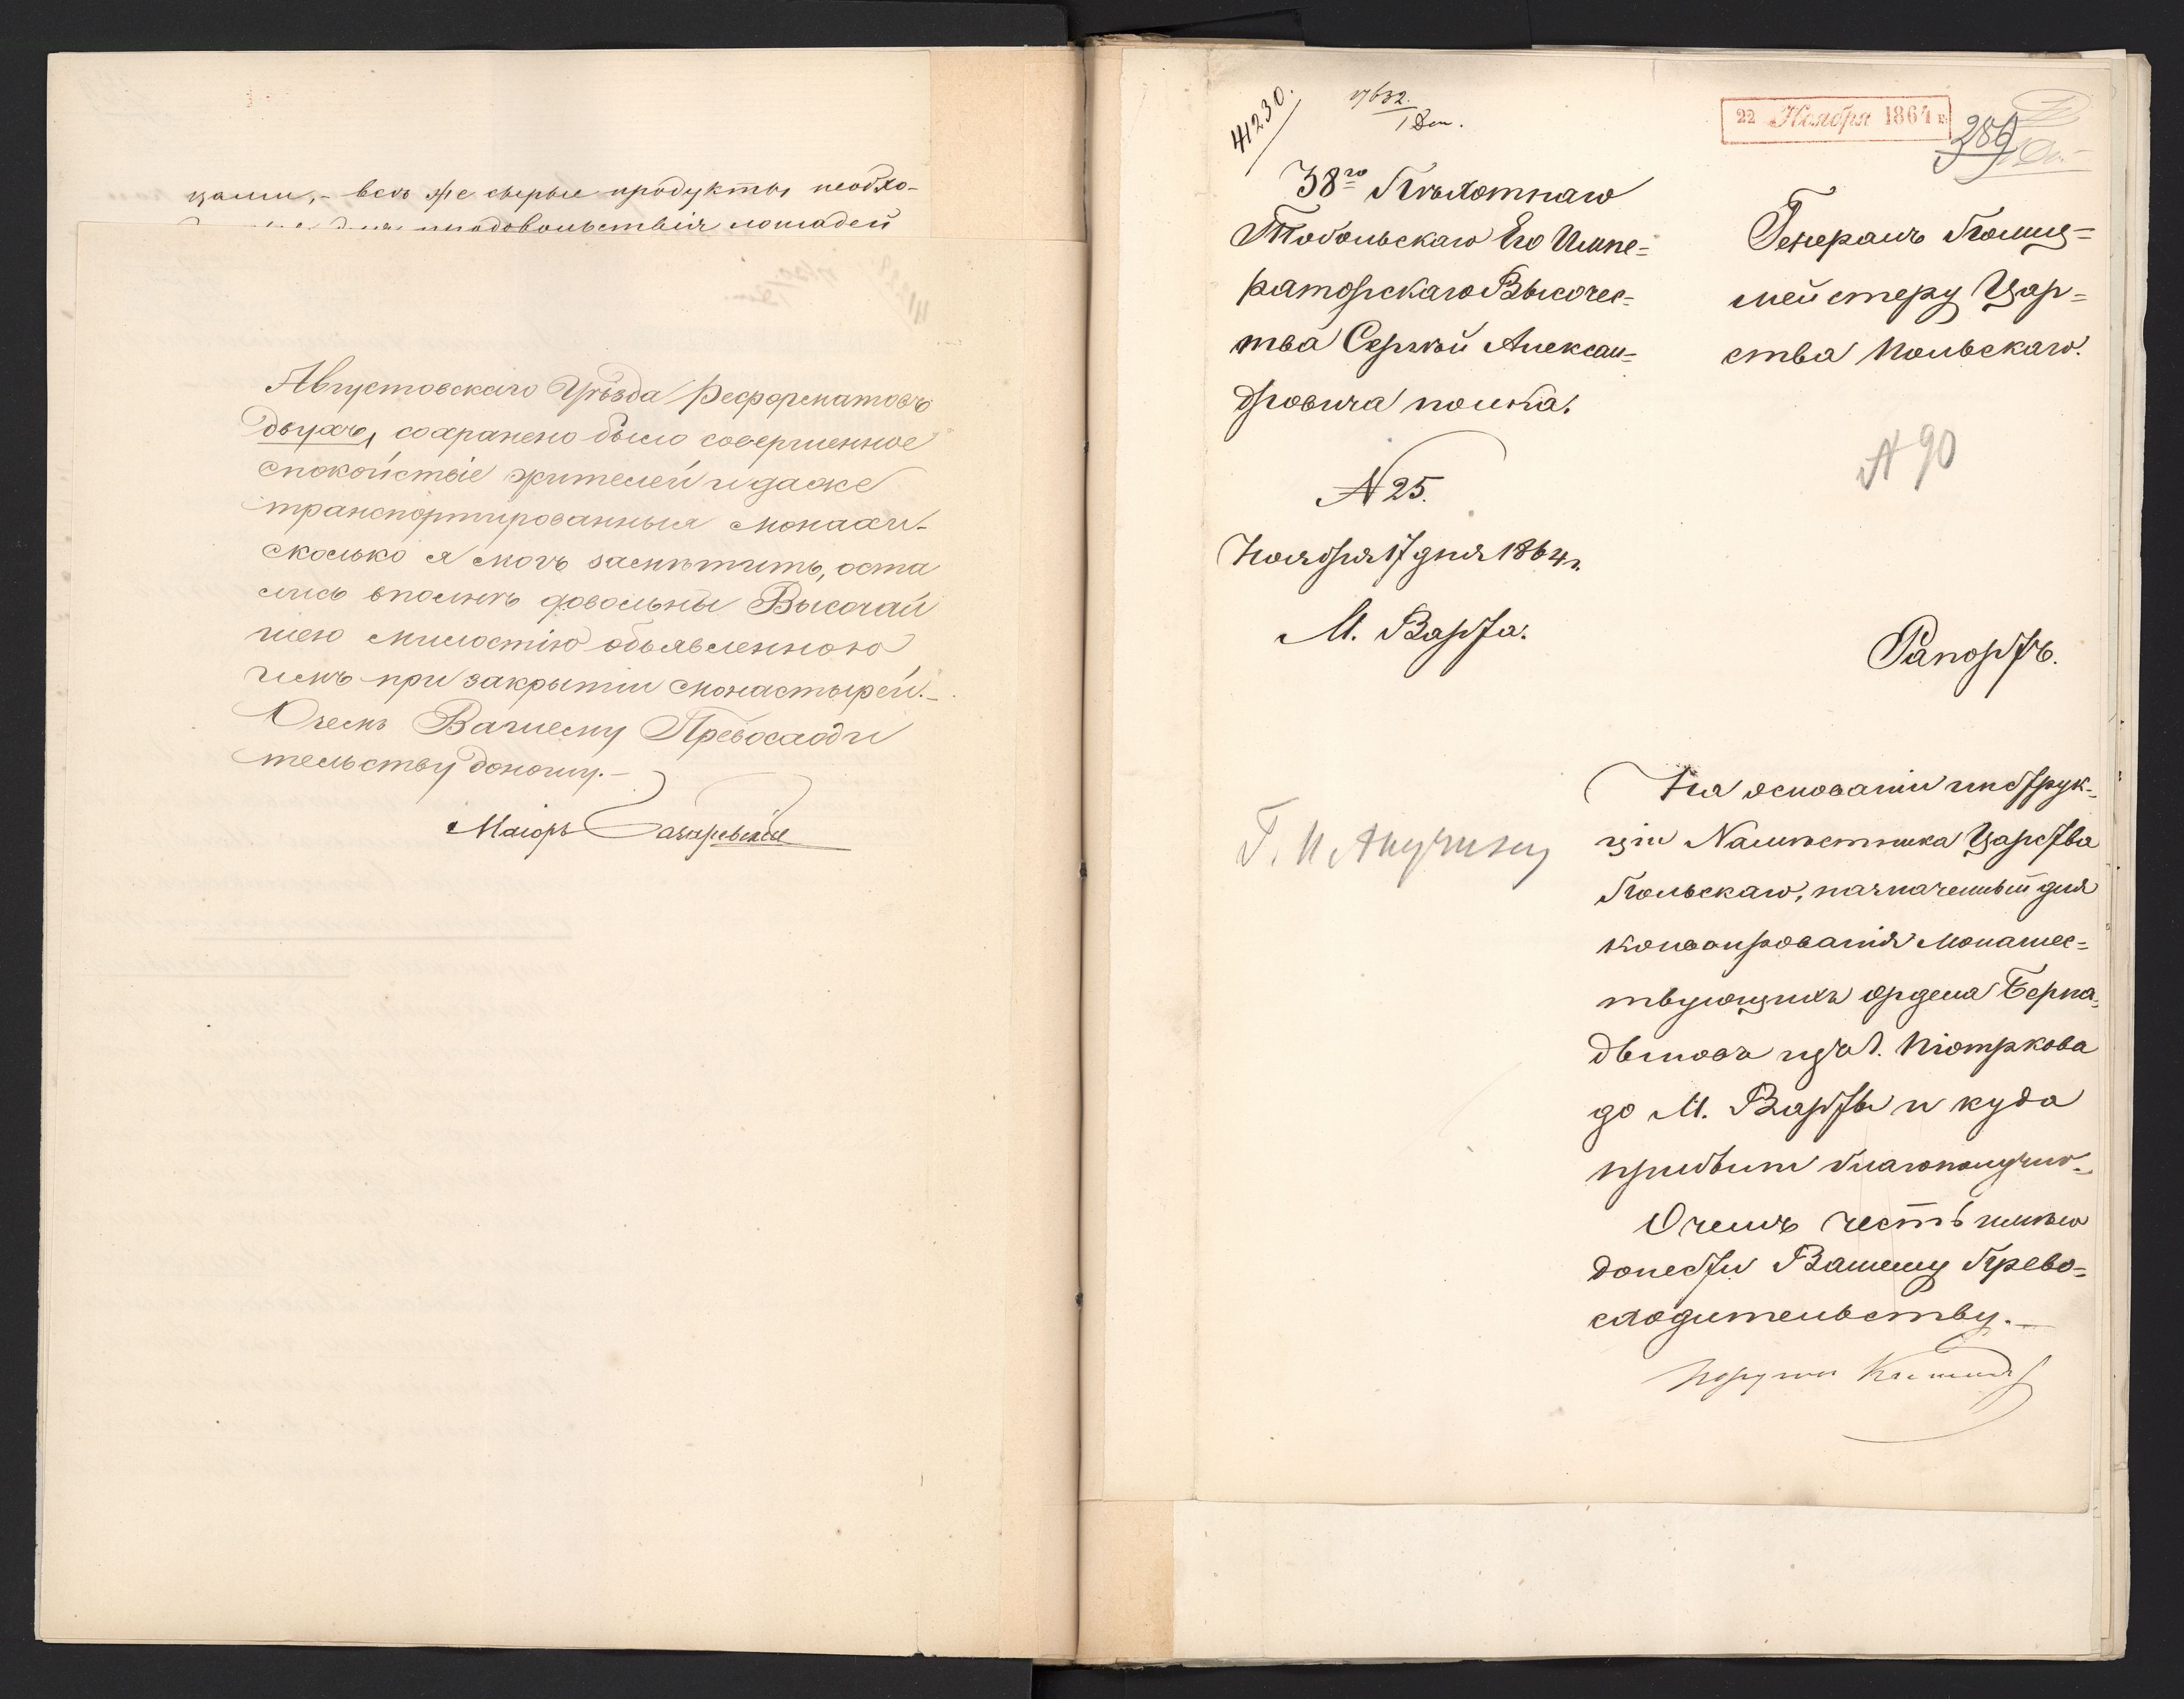 цами, - всѣ же сырые продукты необхо-
продовольствія лошадей
Августовскаго Уѣзда Реформатовъ
двухъ, сохранено было совершенное
спокойствіе жителей и даже
транспортированныя монахи -
сколько я могъ замѣтить, оста
лись вполнѣ довольны Высочай
шею милостію объявленною
имъ при закрытіи монастырей. -
О чемъ Вашему Превосходи
тельству доношу. -
Маіоръ
41230.
17632.
1 Дек.
22 Ноября 1864 г.
389
38го Пѣхотнаго
Тобольскаго Его Импе=
раторскаго Высочес=
тва Сергѣй Алексан=
дровича полка.
N 25.
Ноября 17 дня 1864 г.
М. Варта.
Генералъ Полиц=
мейстеру Цар=
ства Польскаго.
N 90
Рапортъ.
Г. П Анучину
На основаніи инструк-
ціи Намѣстника Царства
Польскаго, назначенный для
конвоированія Монашес=
твующихъ ордена Берна-
дыновъ изъ г. Піотркова
до М. Варты и куда
прибыли благополучно. -
О чемъ честь имѣю
донести Вашему Прево=
сходительству. -
Поручикъ